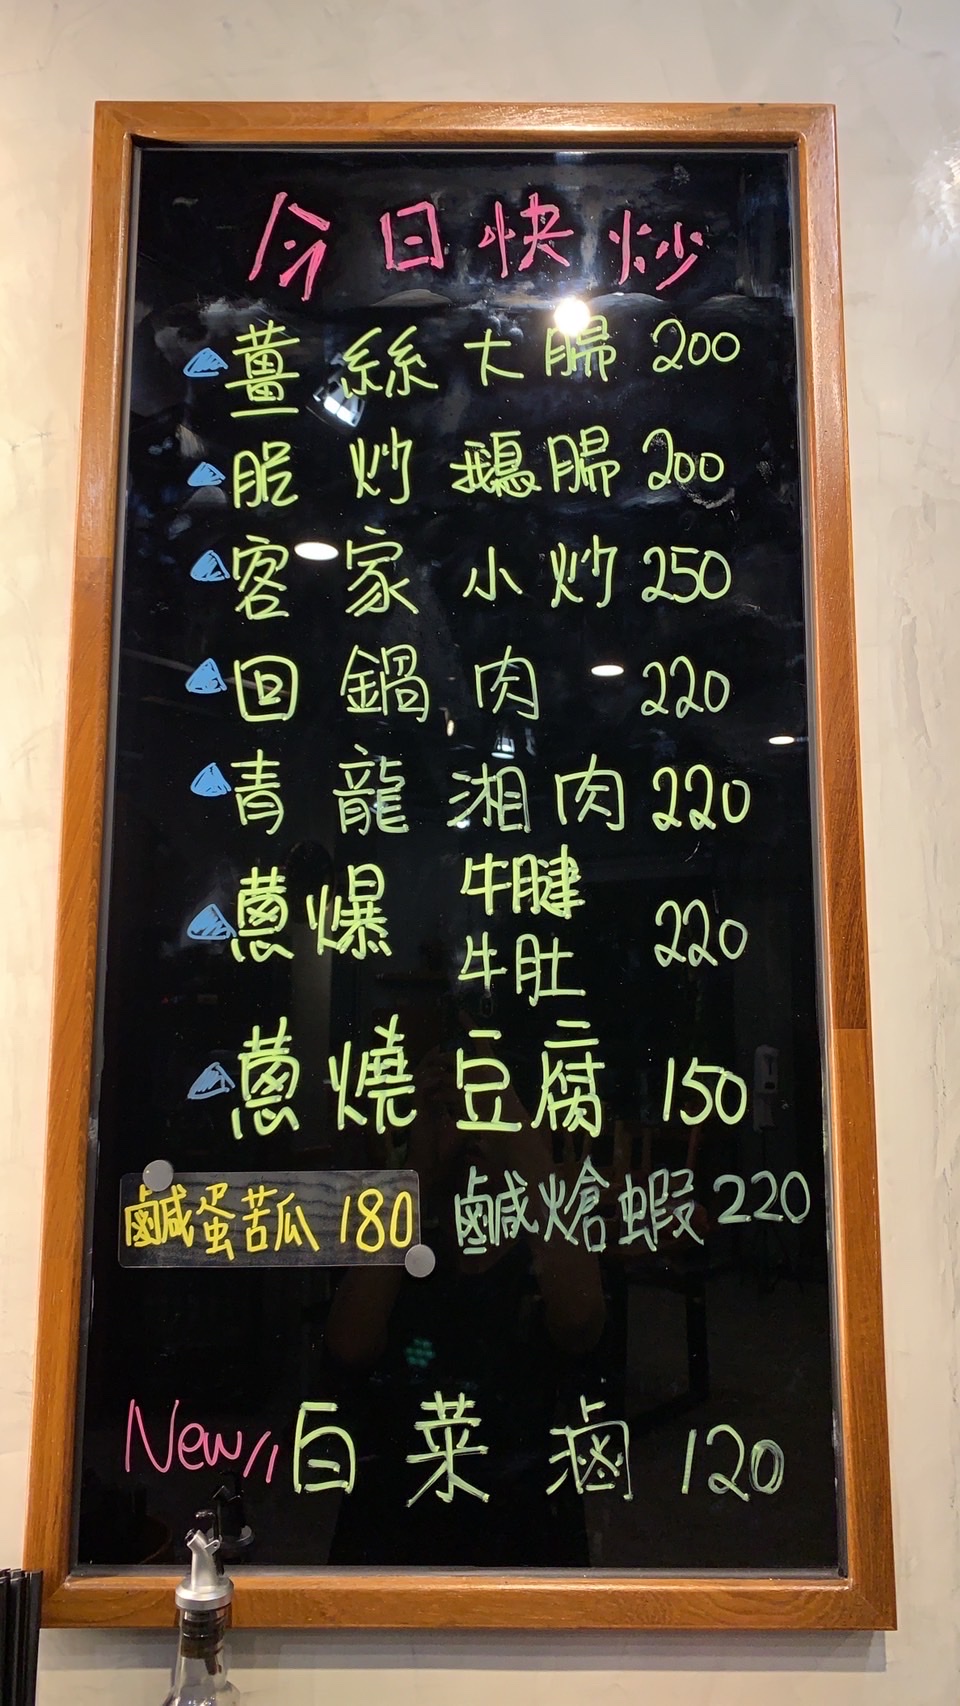 今日快炒
薑絲大腸 200
脆炒鵝腸 200
客家小炒 250
回鍋肉 220
青龍湘肉 220
蔥爆 牛腱 牛肚 220
蔥燒豆腐 150
鹹蛋苦瓜 180
鹹熗蝦 220
New!! 白菜滷 120